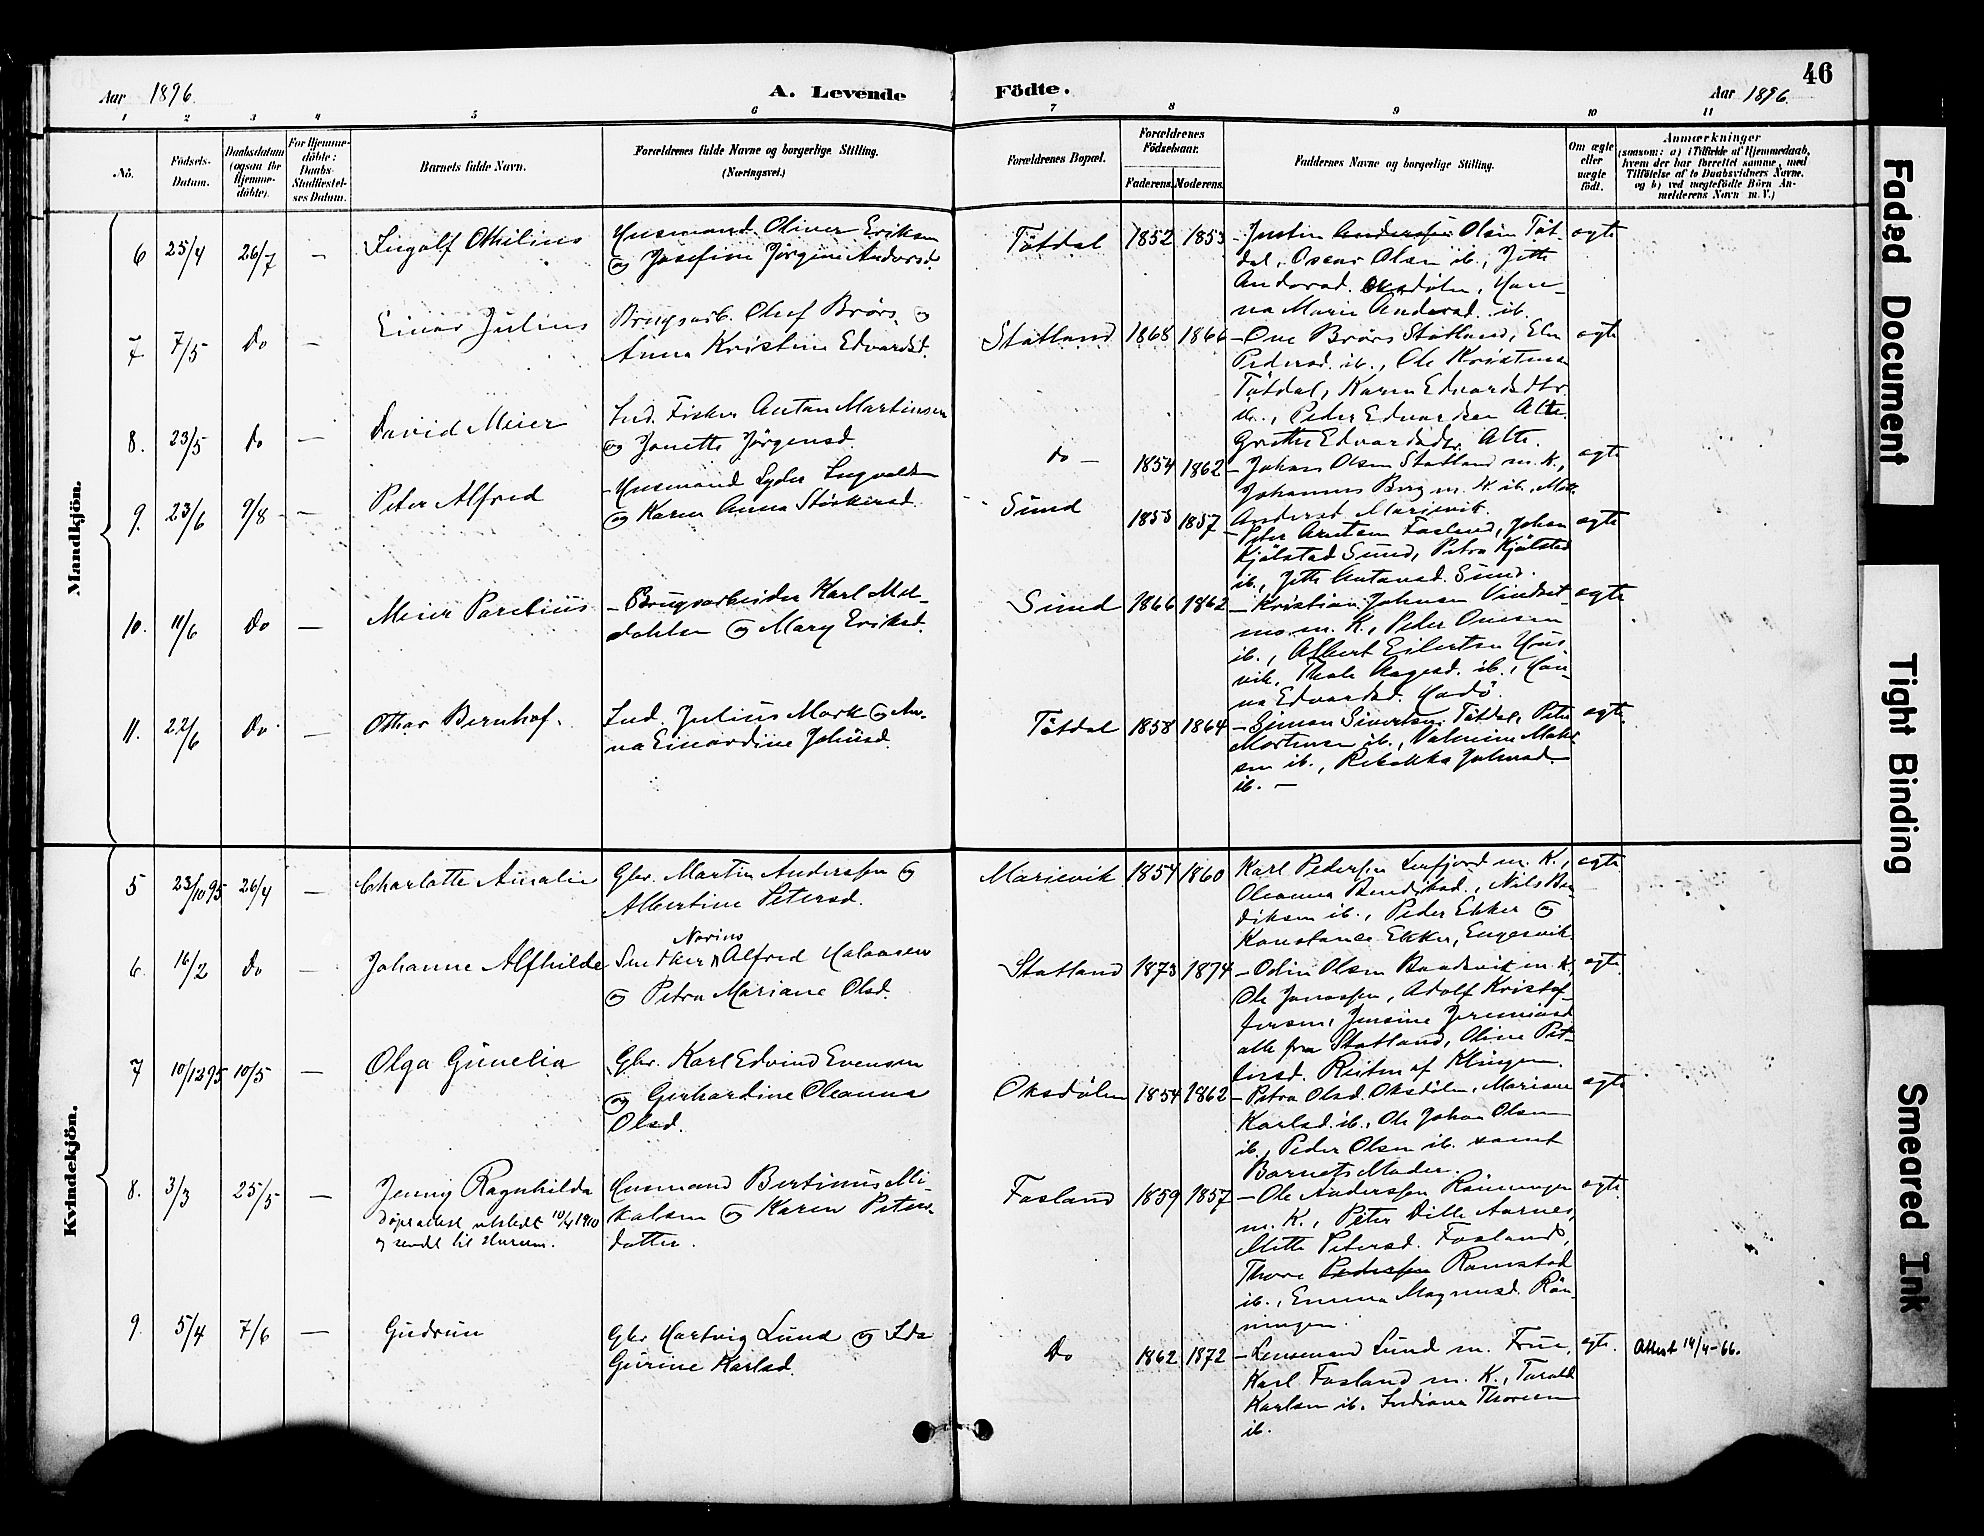 46
Aar 1896.
A. Levende
Födte.
Aar 1896.
1 2 3 4 5 6 7 8 9 10 11
No.
Födsels-
Datum.
Daabsdatum
(ogsaa for
Hjemme-
döbte).
For Hjemme-
döbte:
Daabs-
Stadfæstel-
ses Datum.
Barnets fulde Navn.
Forældrenes fulde Navne og borgerlige Stilling.
(Næringsvei.)
Forældrenes Bopæl.
Forældrenes
Födselsaar.
Faderens.
Moderens.
Faddernes Navne og borgerlige Stilling.
Om ægte
eller
uægte
födt.
Anmærkninger
(saasom: a) i Tilfælde af Hjemmedaab,
hvem der har forrettet samme, med
Tilföielse af to Daabsvidners Navne,
og b) ved uægtefödte Börn An-
melderens Navn m. V.)
Mandkjön.
6 25/4 26/7 — Ingolf Othilius
Husmand Oliver Eriksen
og Josefine Jørgine Andersd.
Tötdal 1852 1853
Justin Anderssen Olsen Töt-
dal, Oscar Olsen ib., Jette
Andersd. Oksdölen, Han-
na Marie Andersd. ib.
ægte
7 7/5 Do — Einar Julius
Brugsarb. Oluf Brörs og
Anna Kristine Edvardsd.
Statland 1868 1866
— Ove Brörs Statland, Eln
Pedersd. ib., Ole Kristensen
Tötdal, Karen Edvardsdtr
ib., Peder Edvardsen Alte
Grethe Edvardsdtr. Alte.
ægte
8. 23/5 Do — David Meier
Ind. Fisker Anton Martinsen
og Jonette Jörgensd.
do — 1854 1862
— Johan Olsen Statland m. K.,
Johannes Berg m. K. ib., Mette
Andersd. Marievik.
ægte
9. 23/6 9/8 — Peter Alfred
— Husmand Lyder Ingvaldsen
og Karen Anna Störkersd.
Sund 1855 1857
— Peter Arntsen Fosland, Johan
Kjölstad Sund, Petra Kjölstad
ib., Jette Antonsd. Sund.
ægte
10. 11/6 Do — Meier Parelius
— Brugsarbeider Karl Mel-
dahlen og Mary Eriksd.
Sund 1866 1862
— Kristian Johnsen Vindset-
mo m. K., Peder Ovesen
ib., Albert Eilertsen Hus-
vik, Thale Aagesd. ib., Han-
na Edvardsd. Hadö.
ægte
11. 22/6 Do — Othar Bernhof.
Ind. Julius Mork og An-
na Einardine Johnsd.
Tötdal 1858 1864
— Simon Sivertsen Tötdal, Peter
Mortensen ib., Valmine
sen ib., Rebekka Johnsd.
ib. —
ægte.
Kvindekjön.
5 23/10 95 26/4 — Charlotte Amalie
Gbr. Martin Anderssen og
Albertine Petersd.
Marievik 1857 1860
Karl Pederssen Lerfjord m. K.,
Oleanna Bendiksd., Nils Ben-
diksen ib., Peder Ekker og
Konstance Ekker, Engesvik.
ægte
6. 16/2 Do — Johanne Alfhilde
Snedker Norino Alfred Halaasen
og Petra Mariane Olsd.
Statland 1873 1874
— Odin Olsen Baadsvik m. K.,
Ole Jonassen, Adolf Kristof-
fersen, Jensine Jeremiasd.
alle fra Statland, Oline Pet-
tersd. Reiten af Klingen.
ægte.
7 10/12 95 10/5 — Olga Gunelia
Gbr. Karl Edvind Evensen
og Gerhardine Oleanna
Olsd.
Oksdölen 1854 1862
— Petra Olsd. Oksdölen, Mariane
Karlsd. ib., Ole Johan Olsen
ib., Peder Olsen ib. samt
Barnets Moder.
ægte
8. 3/3 25/5 — Jenny Ragnhilda
Döpsattest utstedt 10/4 1910
og sendt til Hurum.
Husmand Bertinius Mi-
kalsen og Karen Peters-
datter.
Fosland 1859 1857
— Ole Anderssen Rönningen
m. K., Peter Dille Aarnes,
Mette Petersd. Fosland,
Thore Pederssen Ramstad
ib., Emma Magnusd. Rön-
ningen.
ægte
9. 5/4 7/6 — Gudrun
Gbr Hartvig Lund og Ida
Gurine Karlsd.
Do 1862 1872
— Lensmand Lund m. Frue,
Karl Fosland m. K., Torald
Karlsen ib. Indiana Thorsen
ib.
ægte.
Attest 14/4-66.
Faded Document
Tight Binding
Smeared Ink